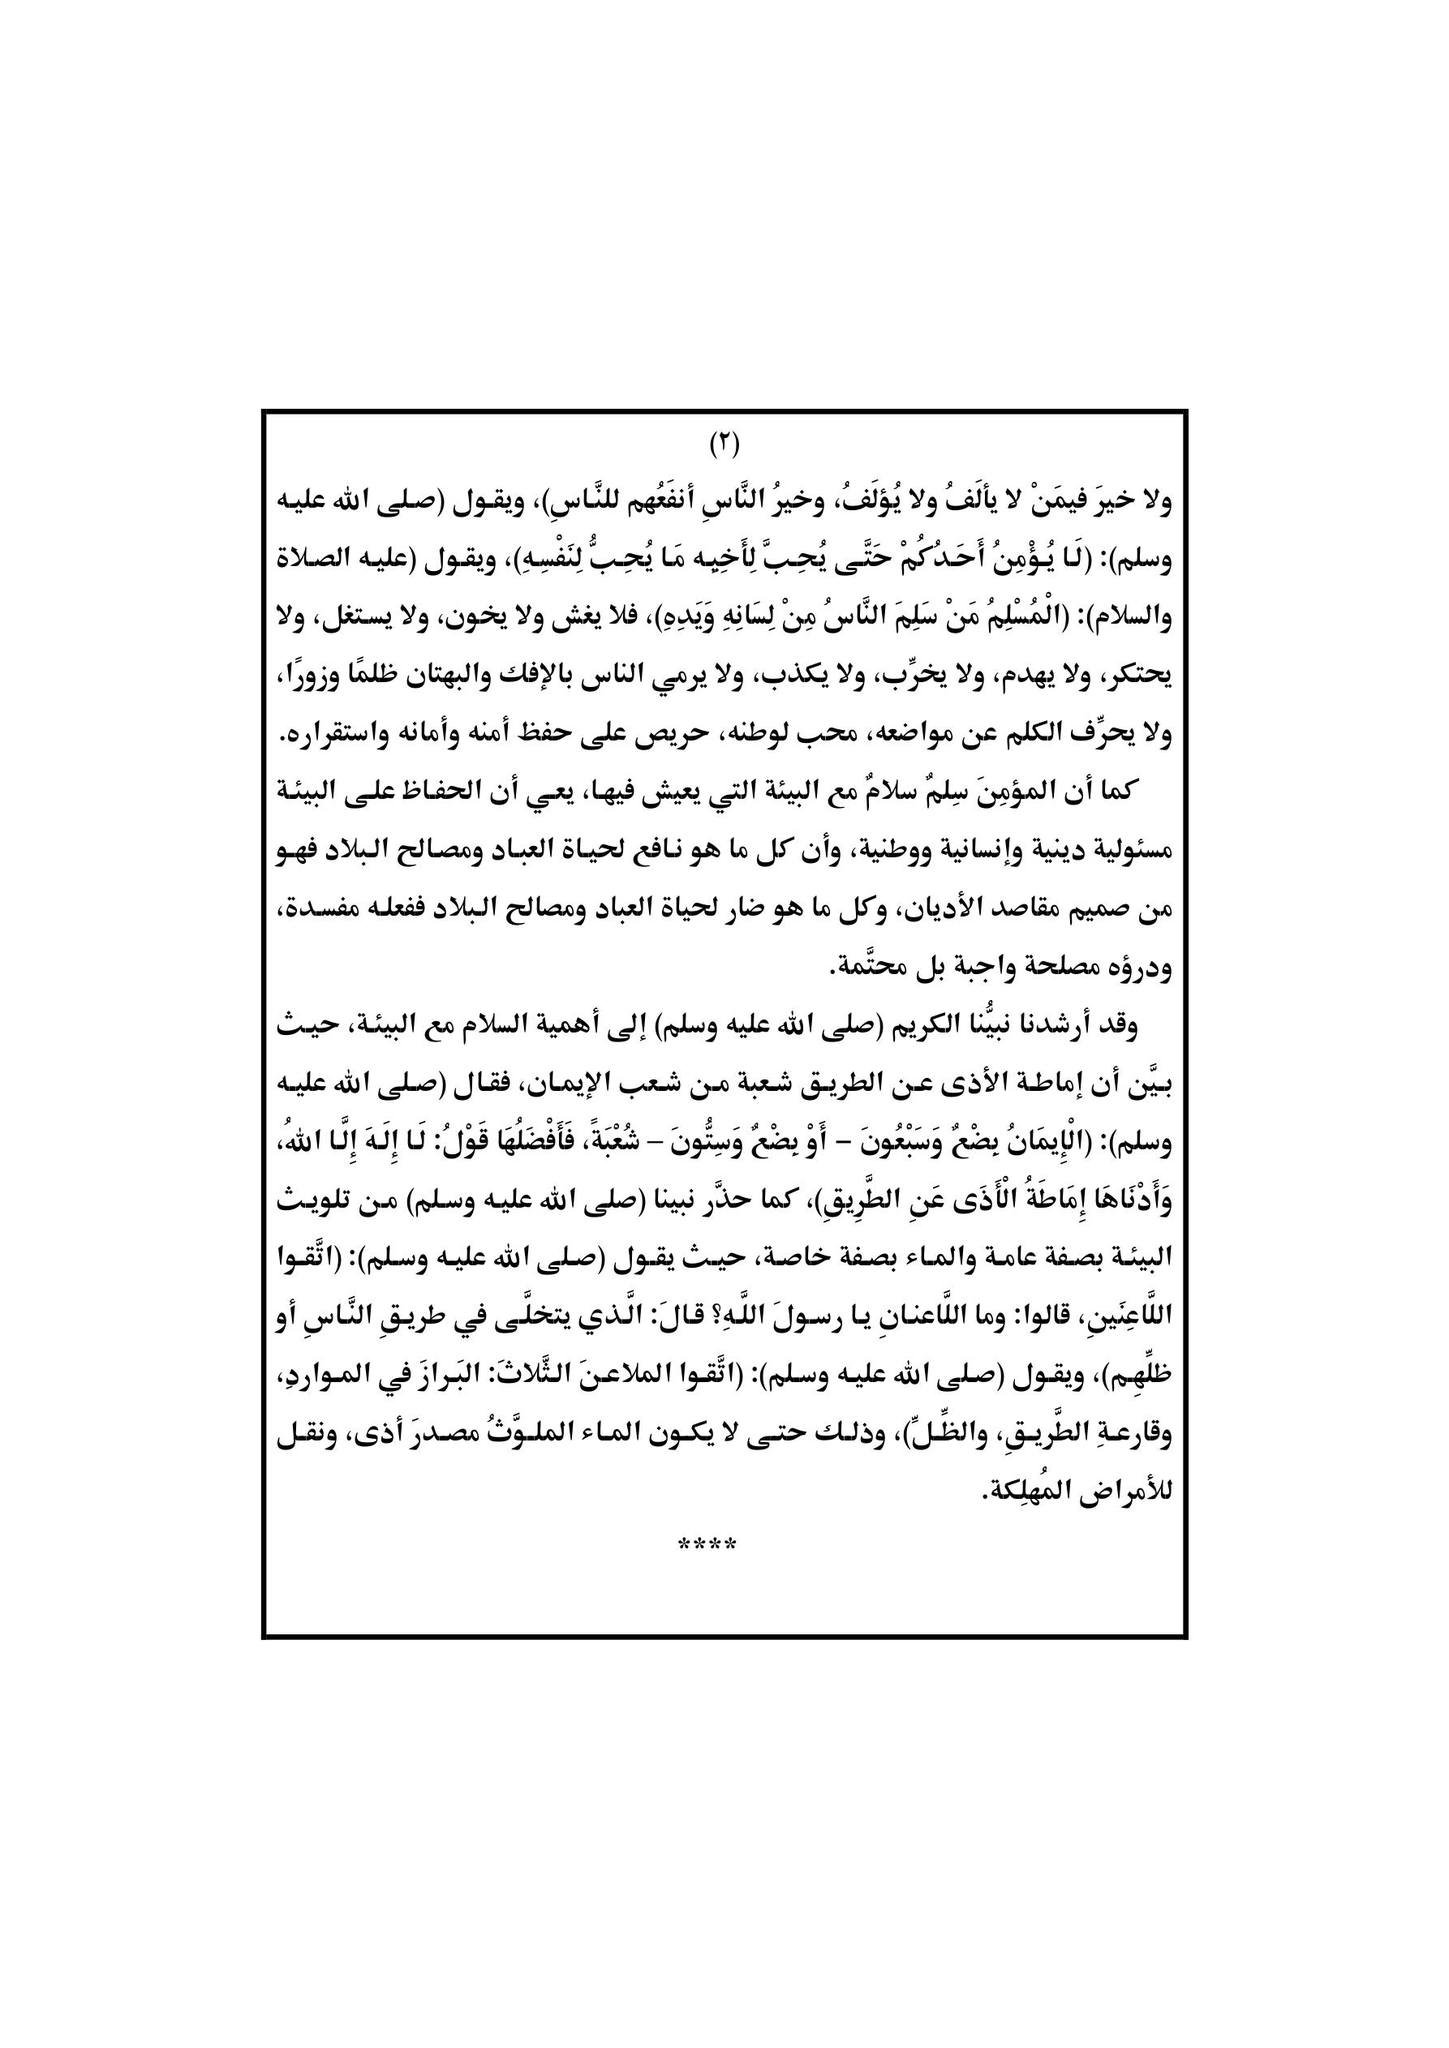 (٢)
ولا خيرَ فيمَنْ لا يألَفُ ولا يُؤلَفُ، وخيرُ النَّاسِ أنفَعُهم للنَّاسِ)، ويقول (صلى الله عليه
وسلم): (لَا يُؤْمِنُ أَحَدُكُمْ حَتَّى يُحِبَّ لِأَخِيِه مَا يُحِبُّ لِنَفْسِهِ)، ويقول (عليه الصلاة
والسلام): (الْمُسْلِمُ مَنْ سَلِمَ النَّاسُ مِنْ لِسَانِهِ وَيَدِهِ)، فلا يغش ولا يخون، ولا يستغل، ولا
يحتكر، ولا يهدم، ولا يخرِّب، ولا يكذب، ولا يرمي الناس بالإفك والبهتان ظلمًا وزورًا،
ولا يحرِّف الكلم عن مواضعه، محب لوطنه، حريص على حفظ أمنه وأمانه واستقراره.
كما أن المؤمِنَ سِلمٌ سلامٌ مع البيئة التي يعيش فيها، يعي أن الحفاظ على البيئة
مسئولية دينية وإنسانية ووطنية، وأن كل ما هو نافع لحياة العباد ومصالح البلاد فهو
من صميم مقاصد الأديان، وكل ما هو ضار لحياة العباد ومصالح البلاد ففعله مفسدة،
ودرؤه مصلحة واجبة بل محتَّمة.
وقد أرشدنا نبيُّنا الكريم (صلى الله عليه وسلم) إلى أهمية السلام مع البيئة، حيث
بيَّن أن إماطة الأذى عن الطريق شعبة من شعب الإيمان، فقال (صلى الله عليه
وسلم): (الْإِيمَانُ بِضْعٌ وَسَبْعُونَ – أَوْ بِضْعٌ وَسِتُّونَ – شُعْبَةً، فَأَفْضَلُهَا قَوْلُ: لَا إِلَهَ إِلَّا اللهُ،
وَأَدْنَاهَا إِمَاطَةُ الْأَذَى عَنِ الطَّرِيقِ)، كما حذَّر نبينا (صلى الله عليه وسلم) من تلويث
البيئة بصفة عامة والماء بصفة خاصة، حيث يقول (صلى الله عليه وسلم): (اتَّقوا
اللَّاعِنَينِ، قالوا: وما اللَّاعنانِ يا رسولَ اللَّهِ؟ قالَ: الَّذي يتخلَّى في طريقِ النَّاسِ أو
ظلِّهِم)، ويقول (صلى الله عليه وسلم): (اتَّقوا الملاعنَ الثَّلاثَ: البَرازَ في المواردِ،
وقارعةِ الطَّريقِ، والظِّلِّ)، وذلك حتى لا يكون الماء الملوَّثُ مصدرَ أذى، ونقل
للأمراض المُهلِكة.
****